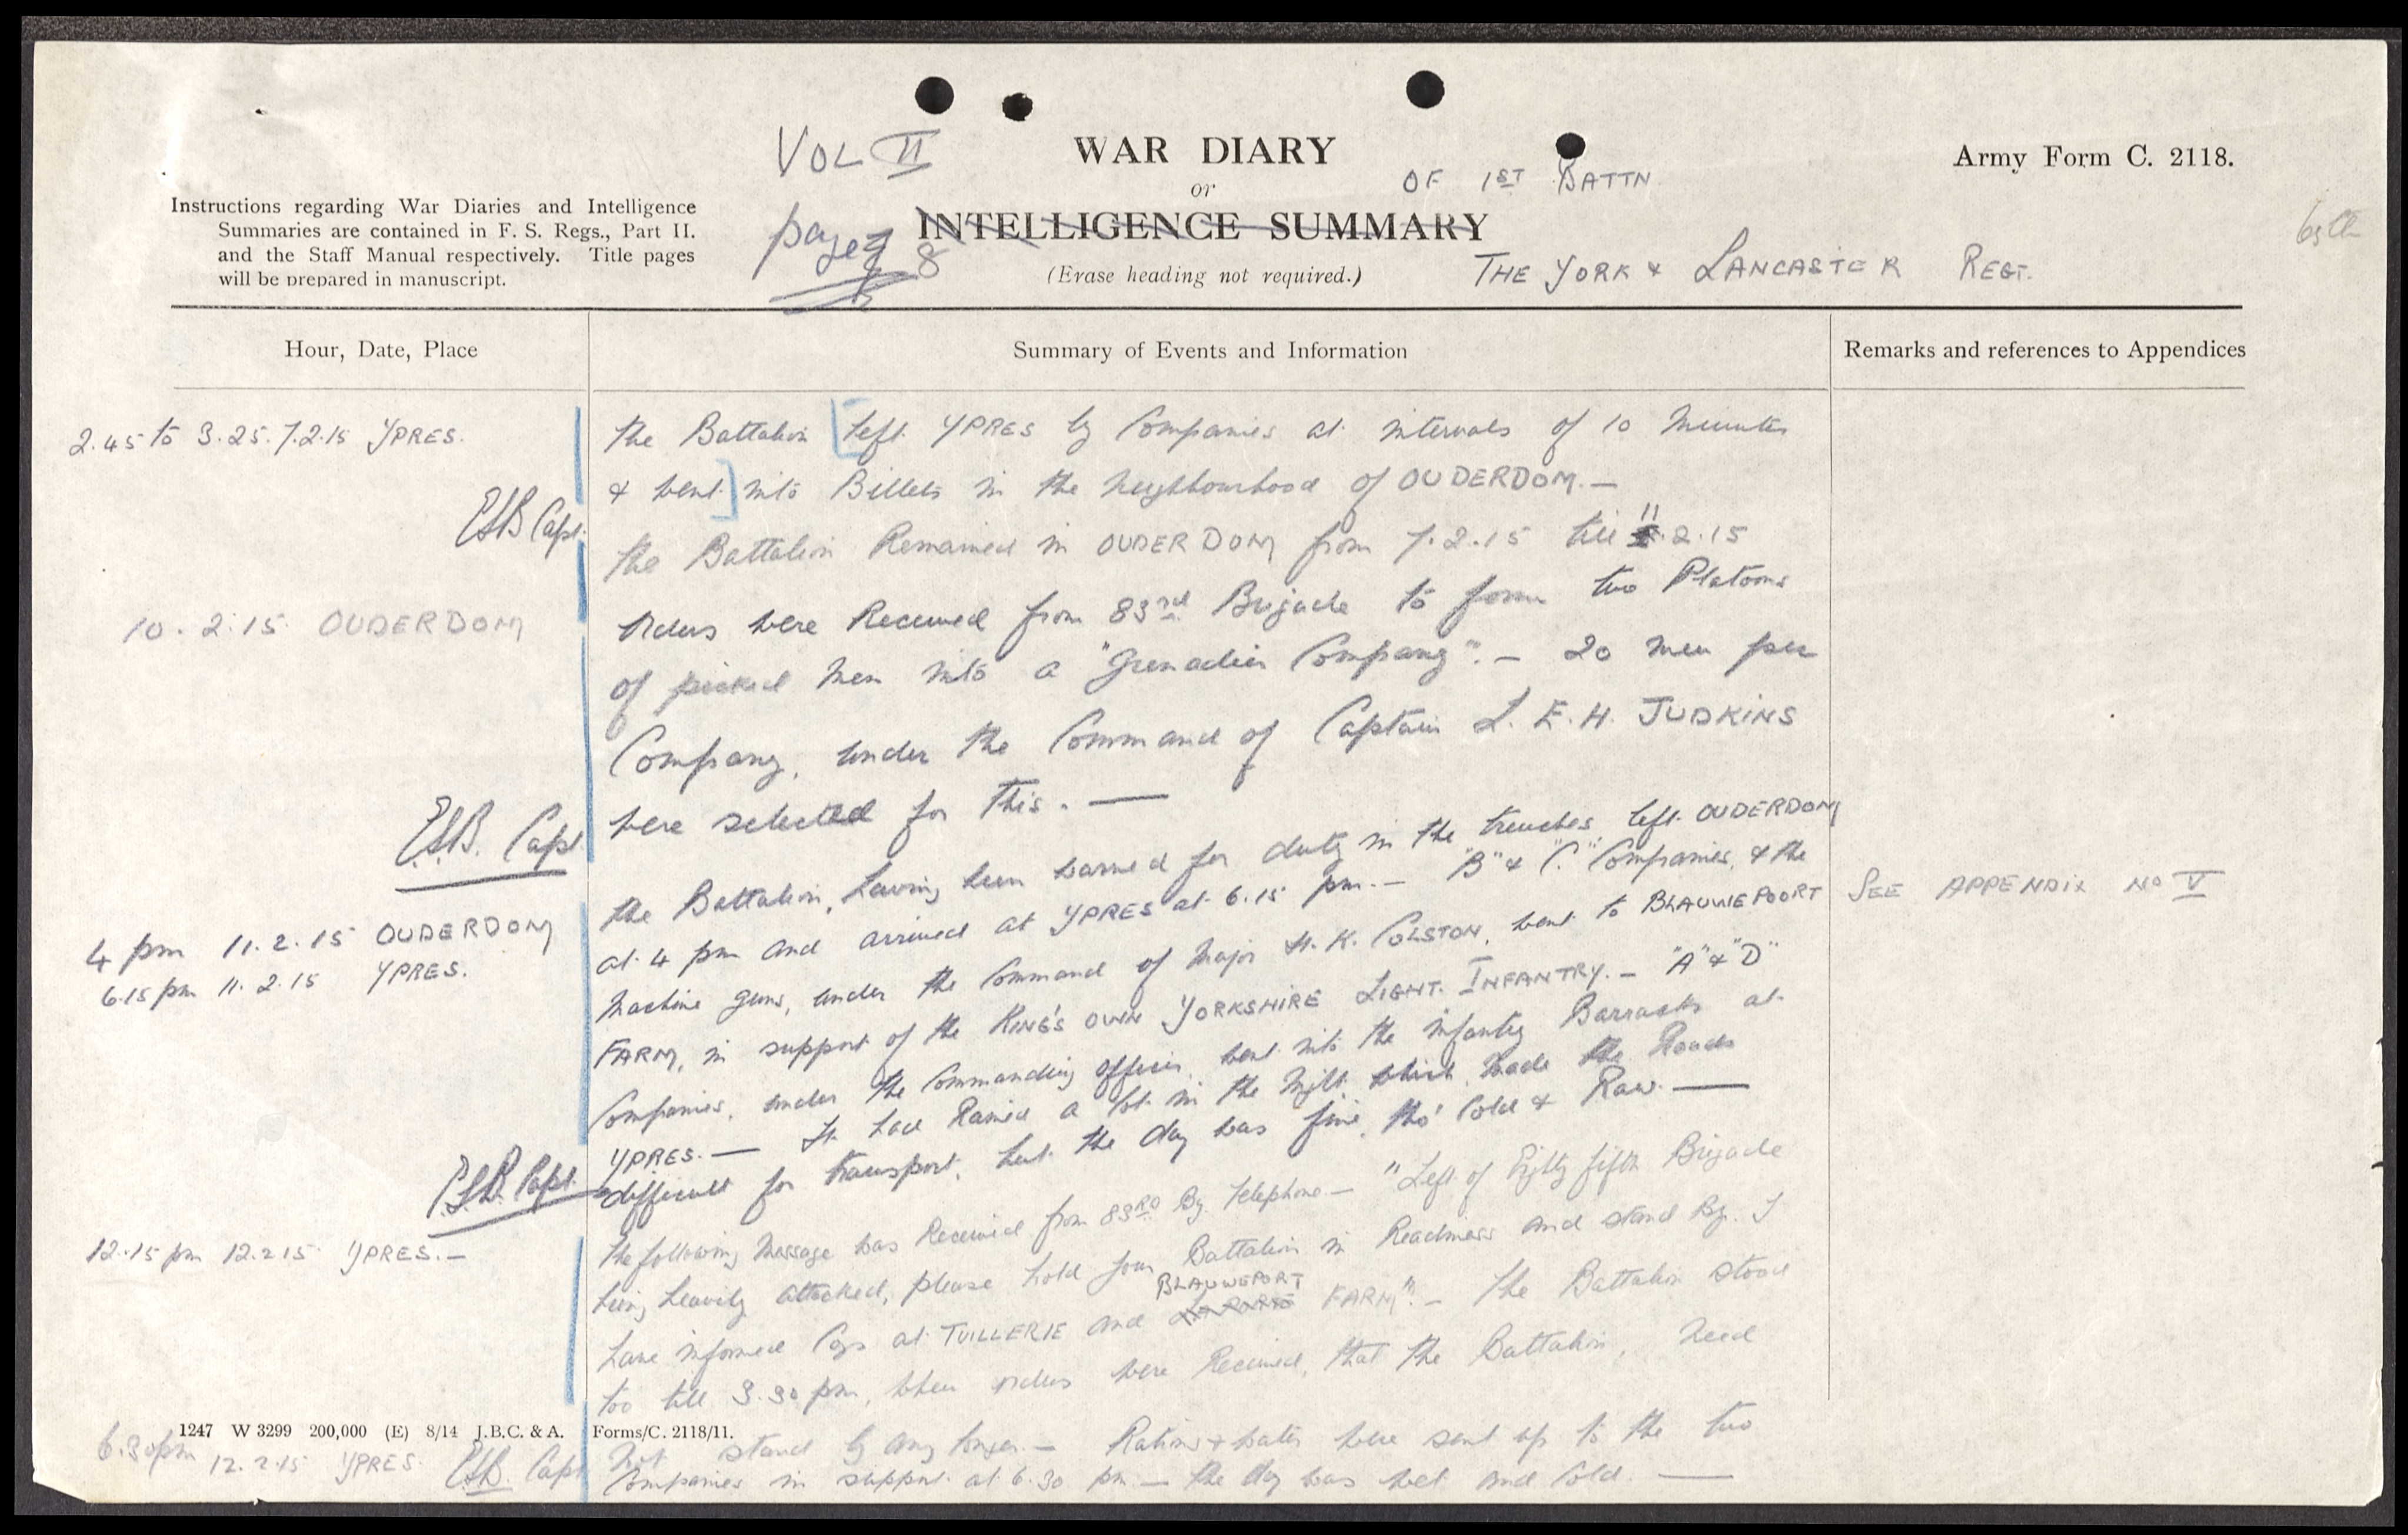 VOL II
WAR DIARY
or
OF 1ST BATTN
Army Form C. 2118.
Instructions regarding War Diaries and Intelligence
Summaries are contained in F. S. Regs., Part II.
and the Staff Manual respectively. Title pages
will be prepared in manuscript.
page 8
INTELLIGENCE SUMMARY
(Erase heading not required.)
THE YORK & LANCASTER REGT.
Hour, Date, Place
Summary of Events and Information
Remarks and references to Appendices
2.45 to 3.25. 7.2.15 YPRES.
The Battalion [left YPRES by Companies at intervals of 10 Minutes
& went] into Billets in the neighbourhood of OUDERDOM. —
ESB Capt.
The Battalion Remained in OUDERDOM from 7.2.15 till 11.2.15
10.2.15 OUDERDOM
Orders were Received from 83rd Brigade to form two Platoons
of picked men into a "Grenadier Company". — 20 men per
Company, under the Command of Captain L. E. H. JUDKINS
were selected for this. —
ESB. Capt
4 pm 11.2.15 OUDERDOM
6.15 pm 11.2.15 YPRES.
The Battalion, having been warned for duty in the trenches left OUDERDOM
at 4 pm and arrived at YPRES at 6.15 pm. — "B" & "C." Companies, & the
Machine Guns, under the Command of Major H. K. COLSTON, went to BLAUWEPOORT
FARM, in support of the KING'S OWN YORKSHIRE LIGHT INFANTRY. — "A" & "D"
Companies, under the Commanding Officer, went into the infantry Barracks at
YPRES. — It had Rained a lot in the night which made the Roads
difficult for transport, but the day was fine, tho' Cold & Raw. —
SEE APPENDIX NO V
ESB. Capt
12.15 pm 12.2.15 YPRES. —
The following Message was Received from 83RD Bg. Telephone — "Left of Eighty fifth Brigade
being heavily attacked, please hold your Battalion in Readiness and stand By. I
have informed Coys at TUILLERIE and BLAUWEPORT FARM". — The Battalion stood
too till 3.30 pm, when orders were Received, that the Battalion, need
1247 W 3299 200,000 (E) 8/14 J.B.C. & A. Forms/C. 2118/11.
6.30 pm 12.2.15 YPRES. ESB. Capt
not stand by any longer. — Rations & water were sent up to the two
Companies in support at 6.30 pm — The day was wet and Cold. —